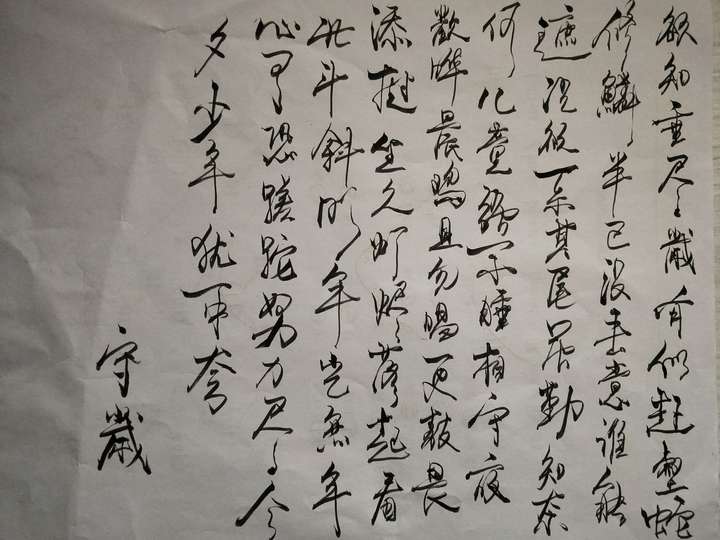 欲知垂尽歲有似赴壑蛇
修鱗半已没去意谁能
遮况欲系其尾虽勤知奈
何儿童强不睡相守夜
歡哗晨鸡且勿唱更鼓畏
添挝坐久灯烬落起看
北斗斜明年岂無年
心事恐蹉跎努力尽今
夕少年犹可夸
守歲